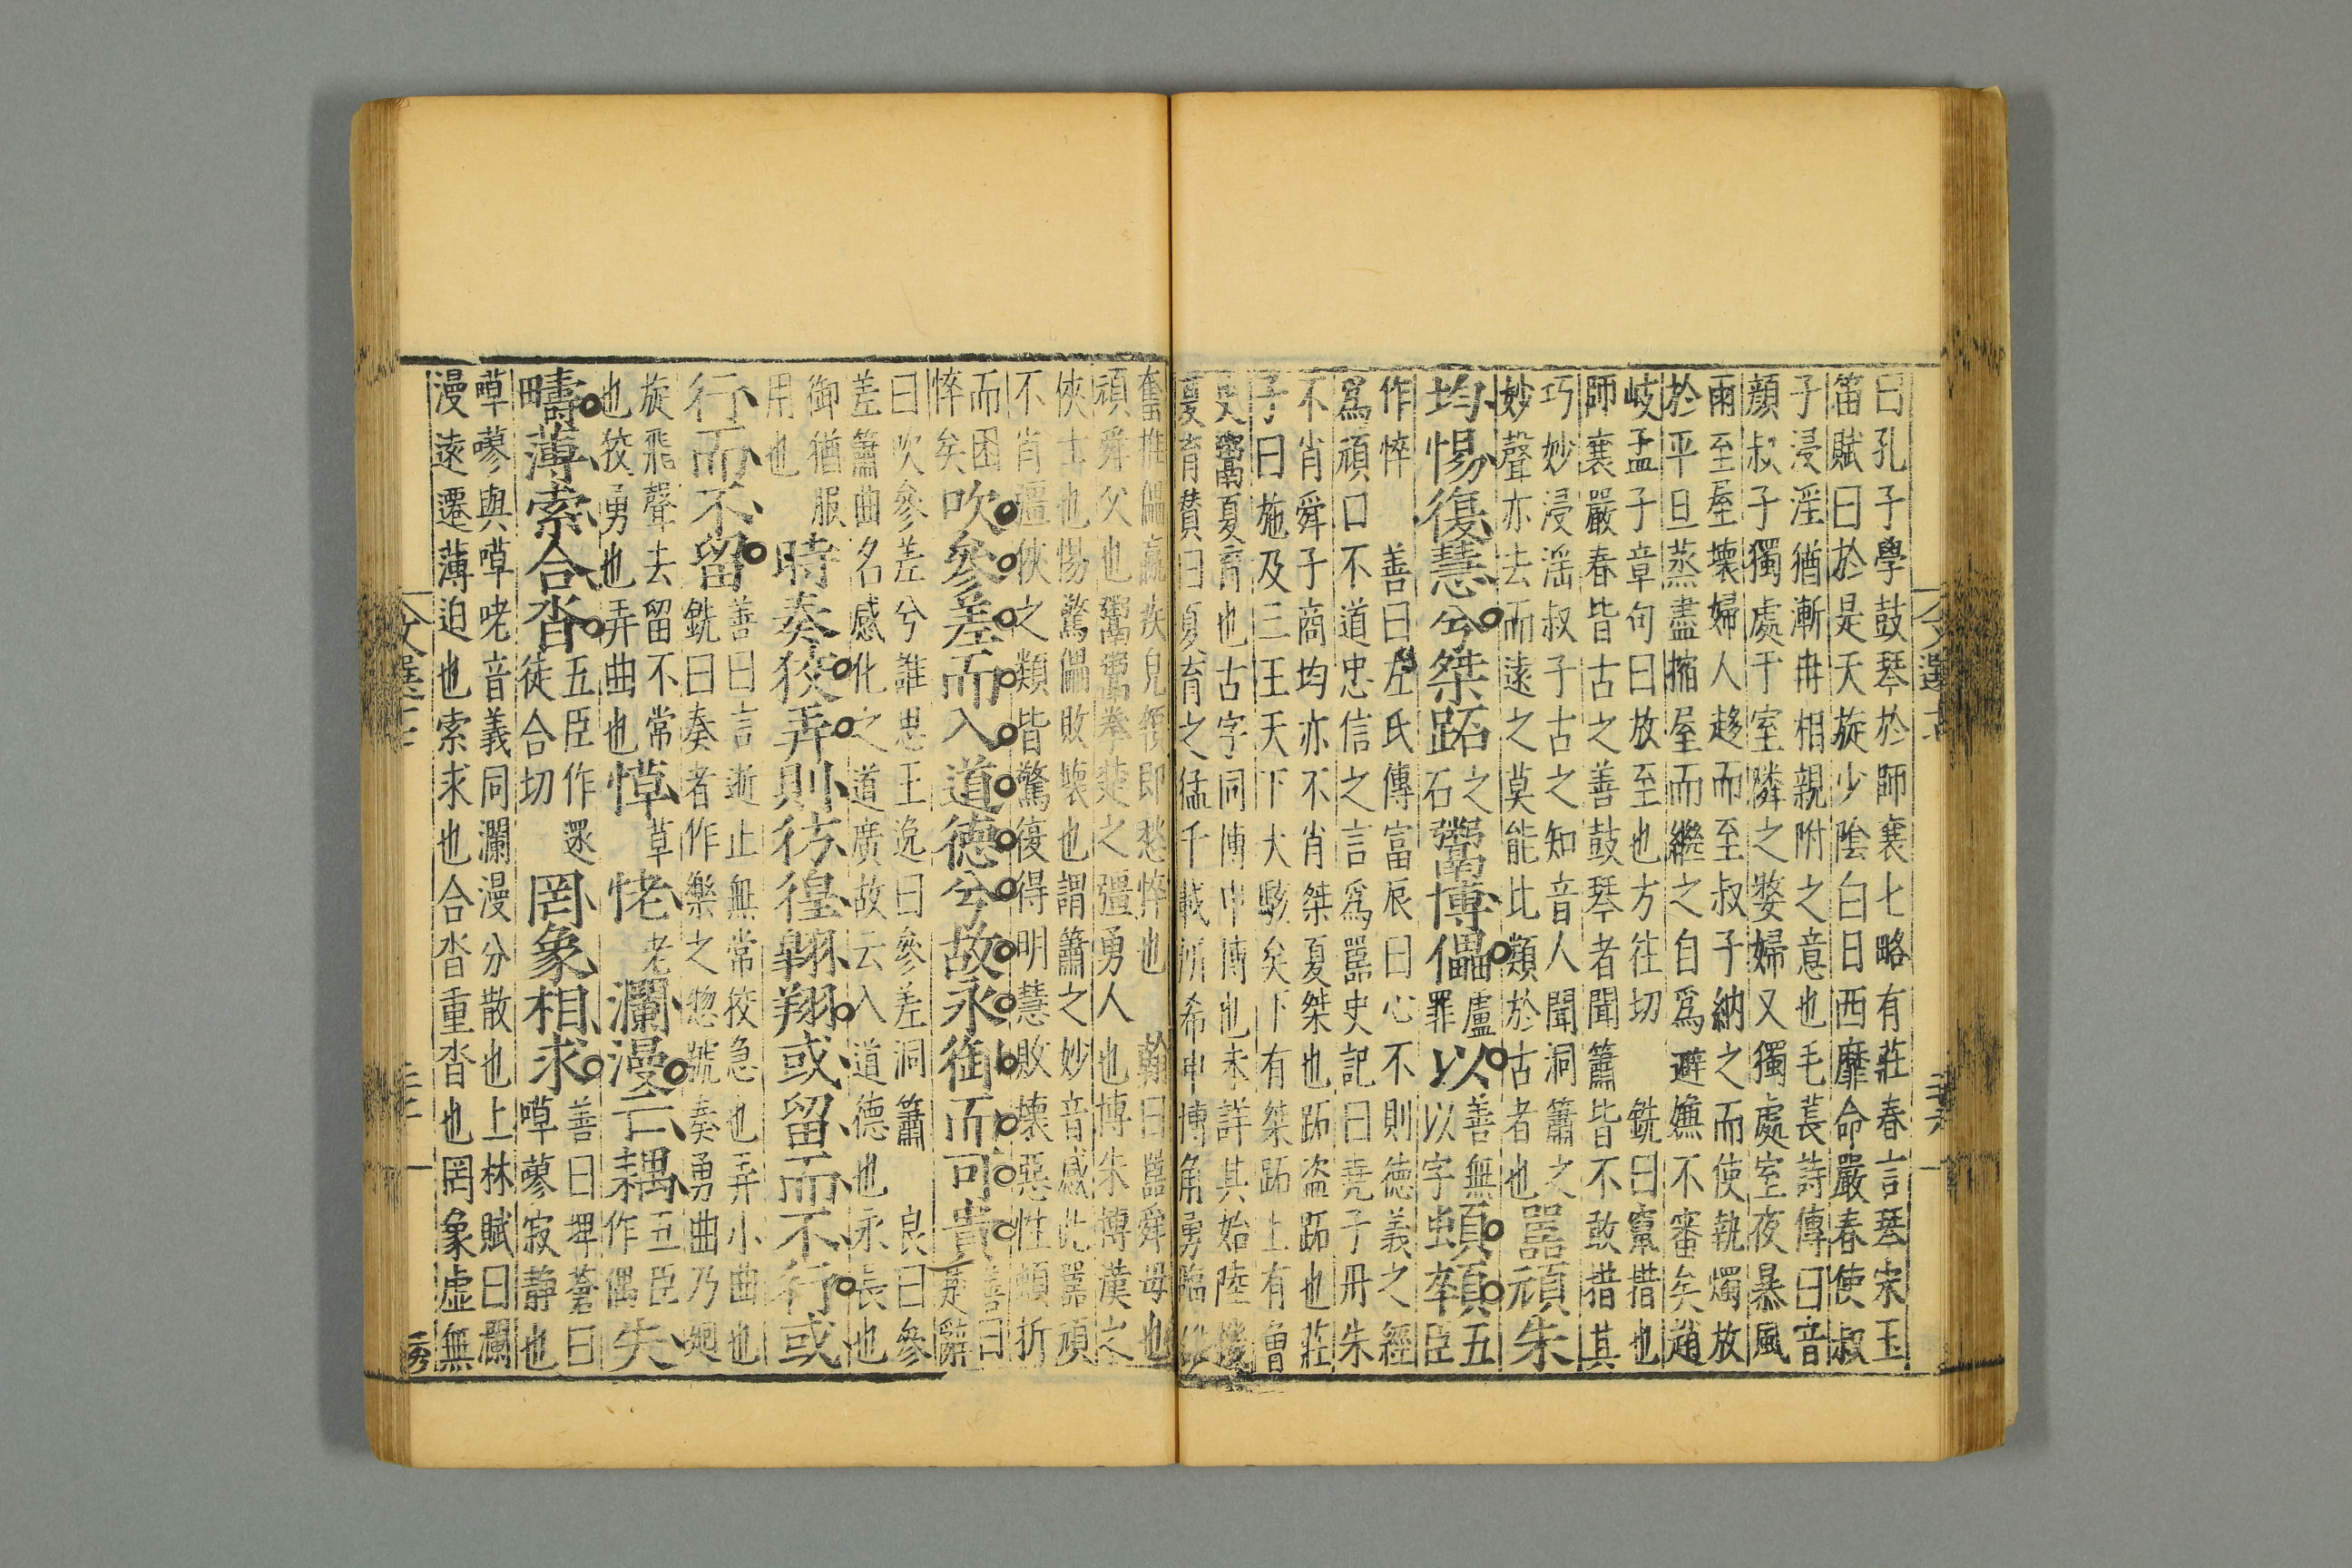 曰孔子學鼓琴於師襄七略有莊春言琴宋玉
笛賦曰於是天旋少陰白日西靡命嚴春使叔
子浸淫猶漸冉相親附之意也毛萇詩傳曰昔
顔叔子獨處于室隣之嫠婦又獨處室夜暴風
雨至屋壊婦人趍而至叔子納之而使執燭放
於平旦蒸盡摍屋而繼之自為避嫌不審矣趙
岐孟子章句曰放至也方往切 銑曰竄措也
師襄嚴春皆古之善鼓琴者聞簫皆不敢措其
巧妙浸淫叔子古之知音人聞洞簫之
妙聲亦去而遠之莫能比類於古者也嚚頑朱
均惕復慧兮桀跖之石鬻博儡盧罪以善無以字頓顇五臣
作悴 善曰左氏傳富辰曰心不則德義之經
爲頑口不道忠信之言爲嚚史記曰堯子丹朱
不肖舜子商均亦不肖桀夏桀也跖盗跖也莊
子曰施及三王天下大駭矣下有桀跖上有曾
史鬻夏育也古字同博申博也未詳其始陸機
夏育賛曰夏育之猛千載所希申博角勇臨
奮椎儡羸疾皃顇即愁悴也 翰曰嚚舜母也
頑舜父也鬻鬻拳楚之彊勇人也博朱博漢之
俠士也惕驚儡敗壊也謂簫之妙音感此嚚頑
不肖彊俠之類皆驚復得明慧敗壊惡性頓折
而困悴矣吹參差而入道德兮故永御而可貴善曰楚辭
曰吹參差兮誰思王逸曰參差洞簫 良曰參
差簫曲名感化之道廣故云入道德也永長也
御猶服用也 時奏狡弄則彷徨翱翔或留而不行或
行而不留善曰言逝止無常狡急也弄小曲也
銑曰奏者作樂之惣號奏勇曲乃廻
旋飛聲去留不常也狡勇也弄曲也 愺草恅老瀾漫亡耦五臣作偶失
疇薄索合沓五臣作還徒合切罔象相求善曰埤蒼曰嘾寥寂静也
嘾寥與嘾咾音義同瀾漫分散也上林賦曰瀾
漫遠遷薄迫也索求也合沓重沓也罔象虚無
文選